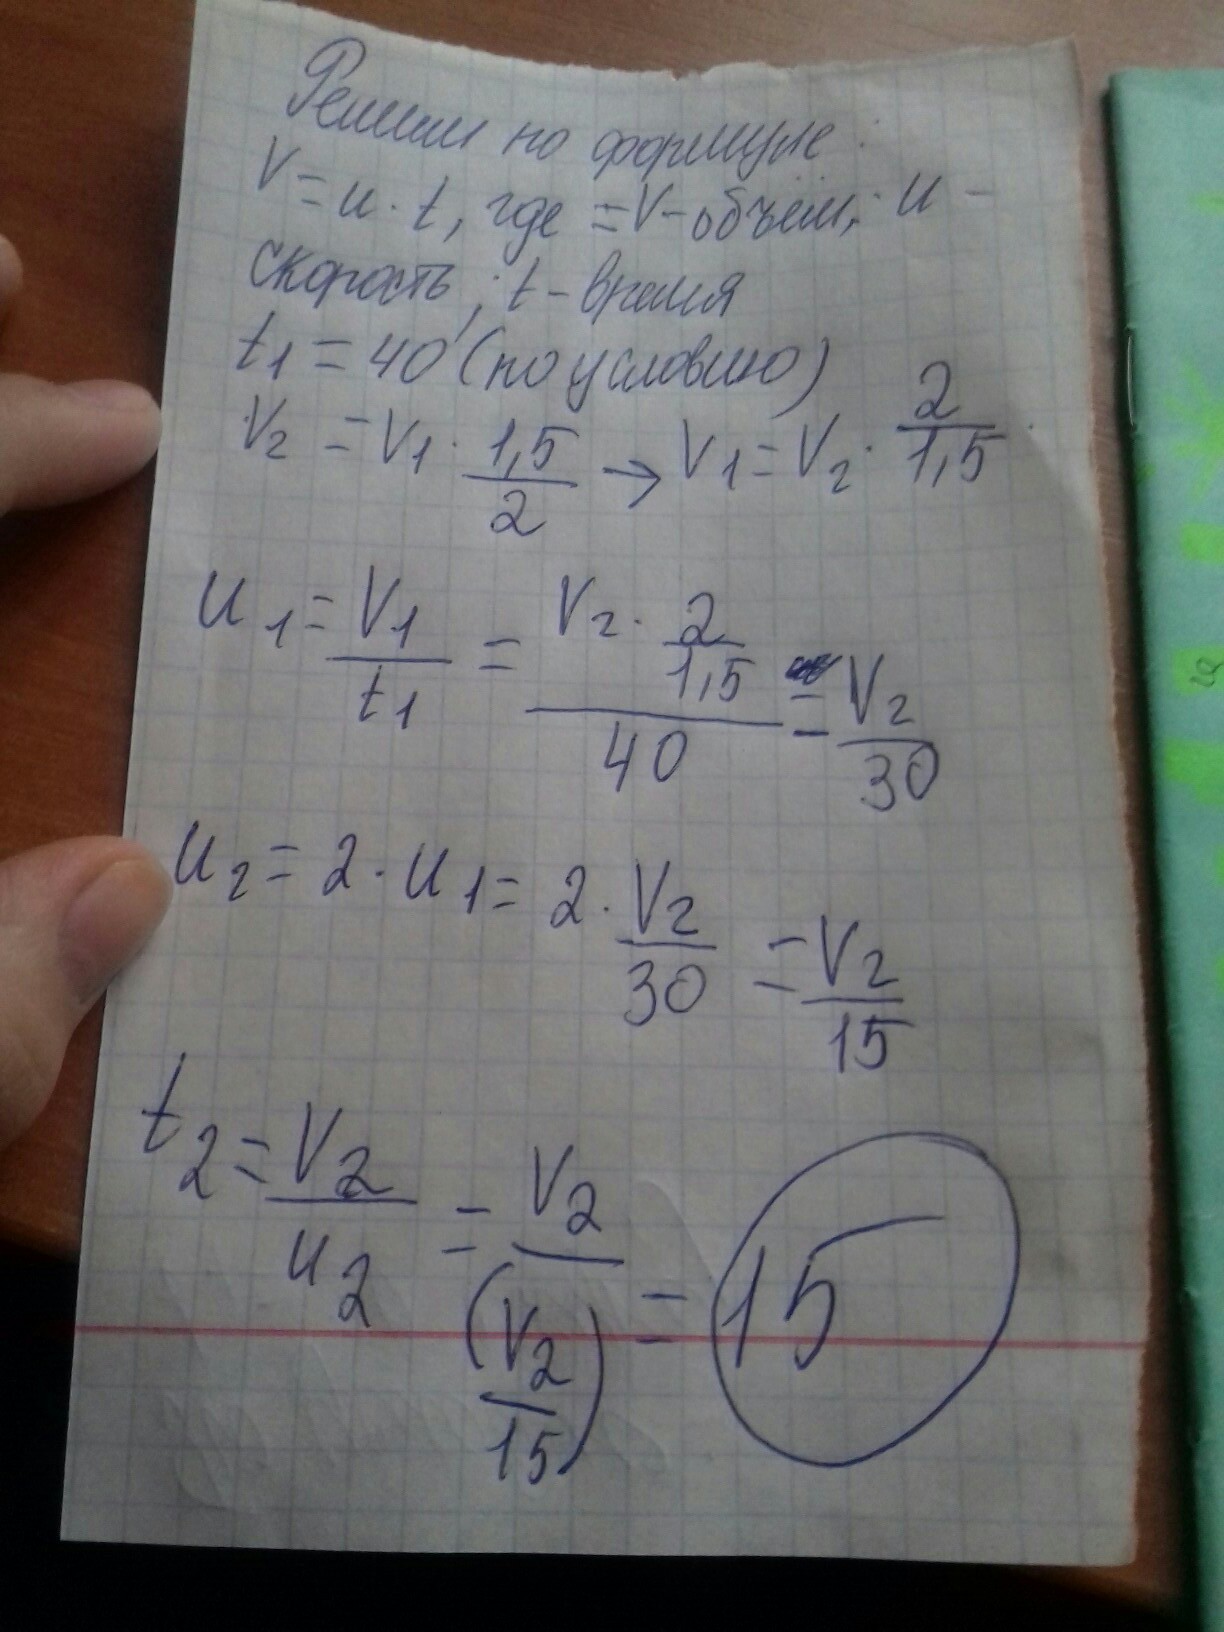 Решим по формуле:
V = u · t, где = V - объём; u -
скорость; t - время
t1 = 40' (по условию)
V2 = V1 · 1,5/2 → V1 = V2 · 2/1,5
u1 = V1/t1 = (V2 · 2/1,5)/40 = V2/30
u2 = 2 · u1 = 2 · V2/30 = V2/15
t2 = V2/u2 = V2/(V2/15) = 15